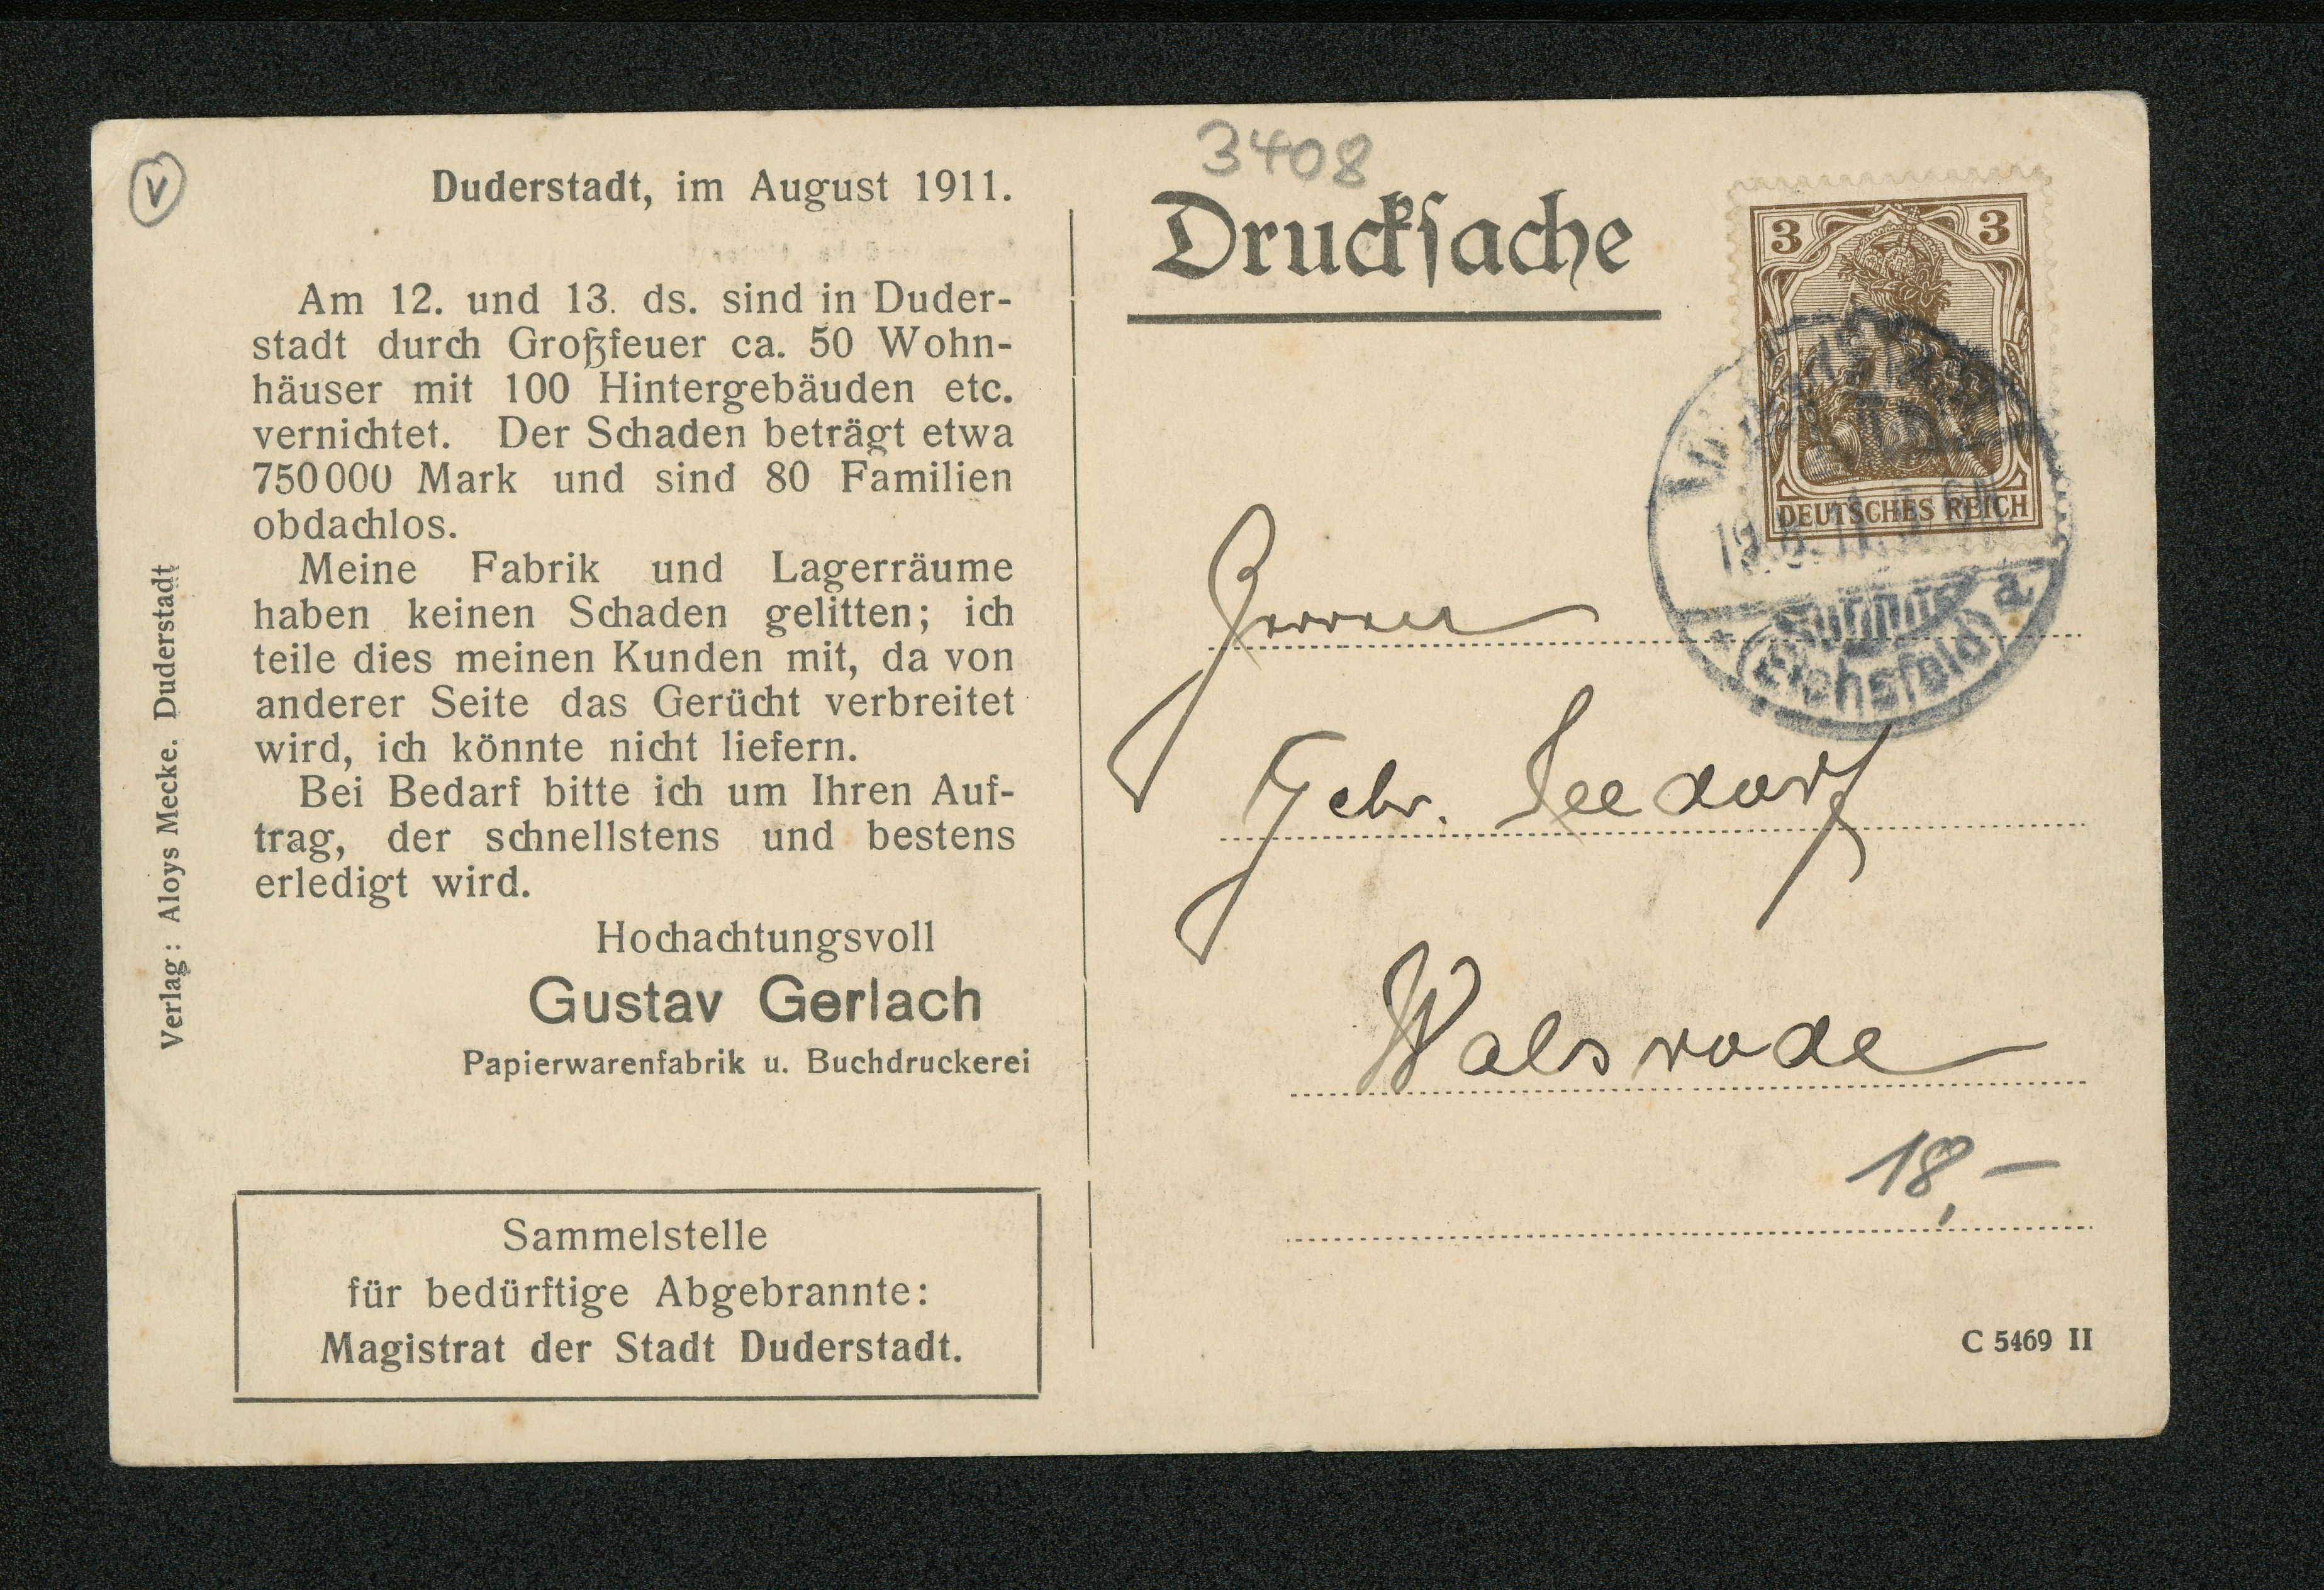 V
Duderstadt, im August 1911.
Am 12. und 13. ds. sind in Duder-
stadt durch Großfeuer ca. 50 Wohn-
häuser mit 100 Hintergebäuden etc.
vernichtet. Der Schaden beträgt etwa
750000 Mark und sind 80 Familien
obdachlos.
Meine Fabrik und Lagerräume
haben keinen Schaden gelitten; ich
teile dies meinen Kunden mit, da von
anderer Seite das Gerücht verbreitet
wird, ich könnte nicht liefern.
Bei Bedarf bitte ich um Ihren Auf-
trag, der schnellstens und bestens
erledigt wird.
Hochachtungsvoll
Gustav Gerlach
Papierwarenfabrik u. Buchdruckerei
Sammelstelle
für bedürftige Abgebrannte:
Magistrat der Stadt Duderstadt.
Verlag: Aloys Mecke. Duderstadt
3408
Drucksache
3 3
DEUTSCHES REICH
(Eichsfeld)
a.
Herren
Gebr. Seedorf
Walsrode
18,-
C 5469 II